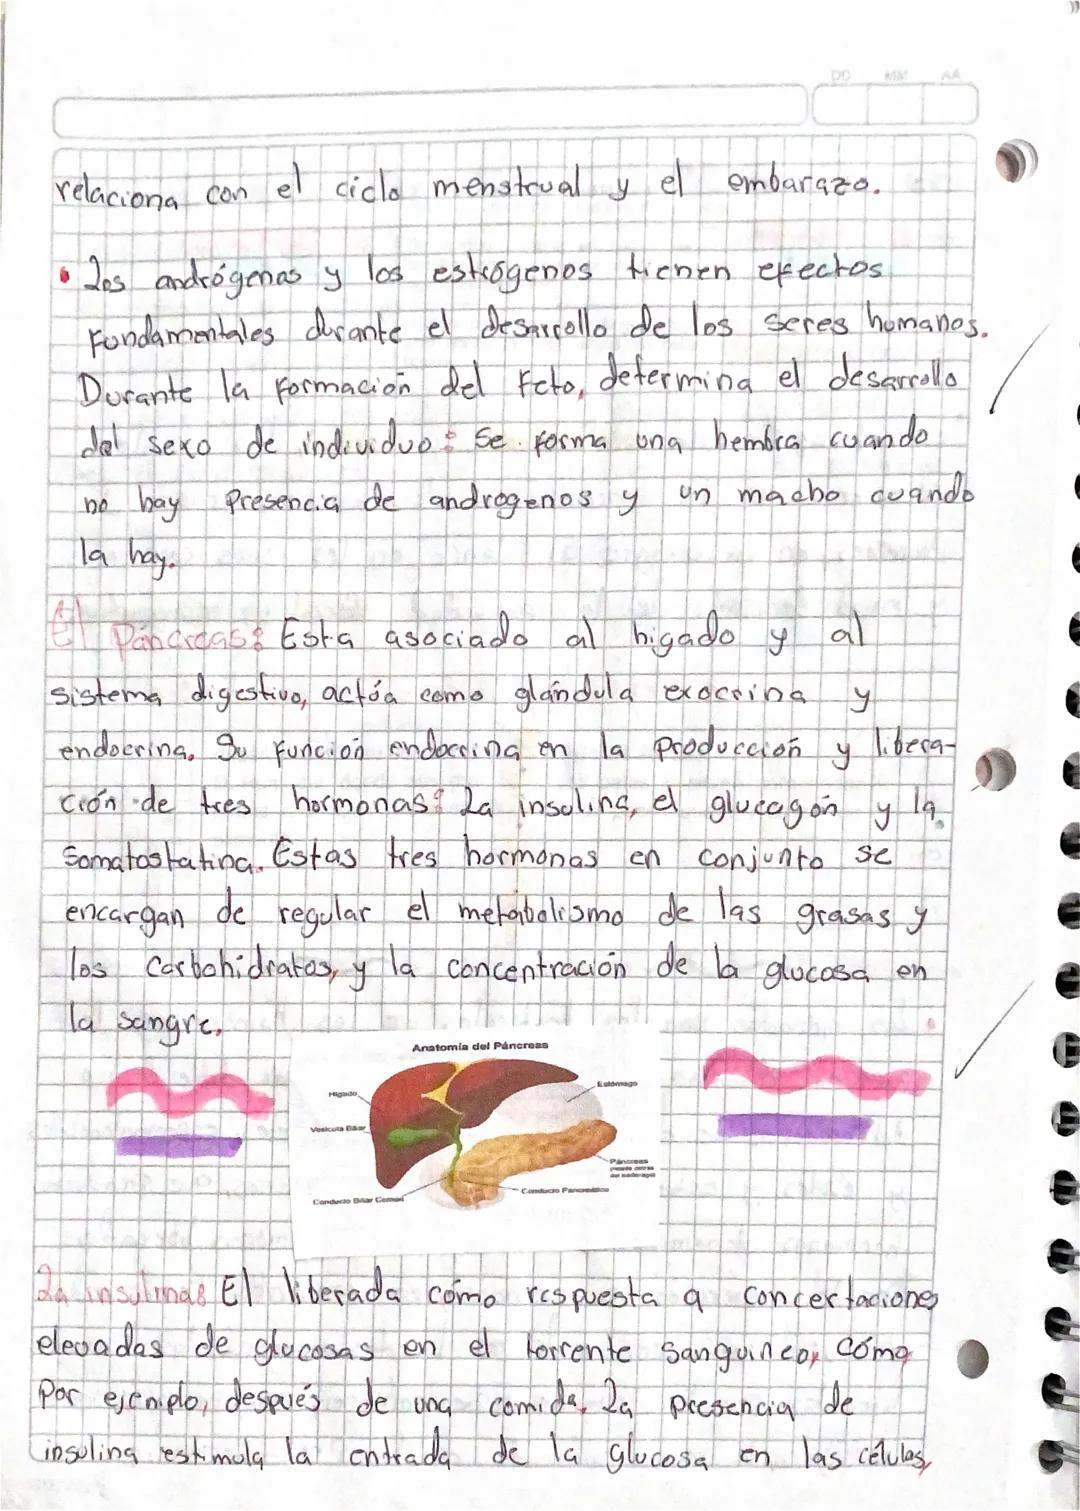 DD MM AA
relaciona con el ciclo menstrual y el embarazo.
• Los andrógenas y los estrógenos tienen efectos
Fundamentales durante el desarrollo de los seres humanos.
Durante la formación del Feto, determina el desarrollo
del sexo de individuo: Se forma una hembra cuando
no hay Presencia de andrógenos y un macho cuando
la hay.
El Páncreas: Esta asociado al higado y al
sistema digestivo, actúa como glándula exocrina y
endocrina. Su función endocrina en la Producción y libera-
ción de tres hormonas: La insulina, el glucagón y la
Somatostatina. Estas tres hormonas en conjunto se
encargan de regular el metabolismo de las grasas y
los Carbohidratos, y la concentración de la glucosa en
la sangre.
Anatomía del Páncreas
Hígado
Estómago
Vesícula Biliar
Páncreas
Conducto Pancreático
Conducto Biliar Común
La insulina: El liberada cómo respuesta a concertaciones
elevadas de glucosas en el torrente Sanguineo, cómo
Por ejemplo, después de una comida. La Presencia de
insulina estimula la entrada de la glucosa en las células,